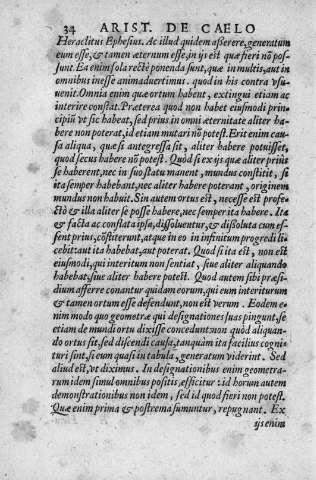 34 ARIST. DE CAELO
Heraclitus Ephesius. Ac illud quidem aßerere, generatum
eum esse, & tamen æternum esse, in ijs est quæ fieri nõ pos-
sunt. Ea enim sola rectè ponenda sunt, quæ in multis, aut in
omnibus inesse animaduertimus. quod in his contra vsu
uenit. Omnia enim quæ ortum habent, extingui etiam ac
interire constat. Præterea quod non habet eiusmodi prin-
cipiũ vt sic habeat, sed prius in omni æternitate aliter ha-
bere non poterat, id etiam mutari nõ potest. Erit enim cau-
sa aliqua, quæ si antegressa sit, aliter habere potuisset,
quod secus habere nõ potest. Quòd si ex ijs quæ aliter priùs
se haberent, nec in suo statu manent, mundus constitit, si
ita semper habebant, nec aliter habere poterant, originem
mundus non habuit. Sin autem ortus est, necesse est profe-
ctò & illa aliter se posse habere, nec semper ita habere. Ita
& facta ac constata ipsa, dissoluentur, & dissoluta cum es-
sent prius, cõstiterunt, atque in eo in infinitum progredi li-
cebit: aut ita habebat, aut poterat. Quod si ita est, non est
eiusmodi, qui interitum non sentiat, siue aliter aliquando
habebat, siue aliter habere potest. Quod autem sibi præsi-
dium afferre conantur quidam eorum, qui eum interiturum
& tamen ortum esse defendunt, non est verum. Eodem e-
nim modo quo geometræ qui designationes suas pingunt, se
etiam de mundi ortu dixisse concedunt: non quòd aliquan-
do ortus sit, sed discendi causa, tanquàm ita facilius cogni-
turi sint, si eum quasi in tabula, generatum viderint. Sed
aliud est, vt diximus. In designationibus enim geometra-
rum idem simul omnibus positis æfficitur: id horum autem
demonstrationibus non idem, sed id quod fieri non potest.
Quæ enim prima & postrema sumuntur, repugnant. Ex
ijs enim